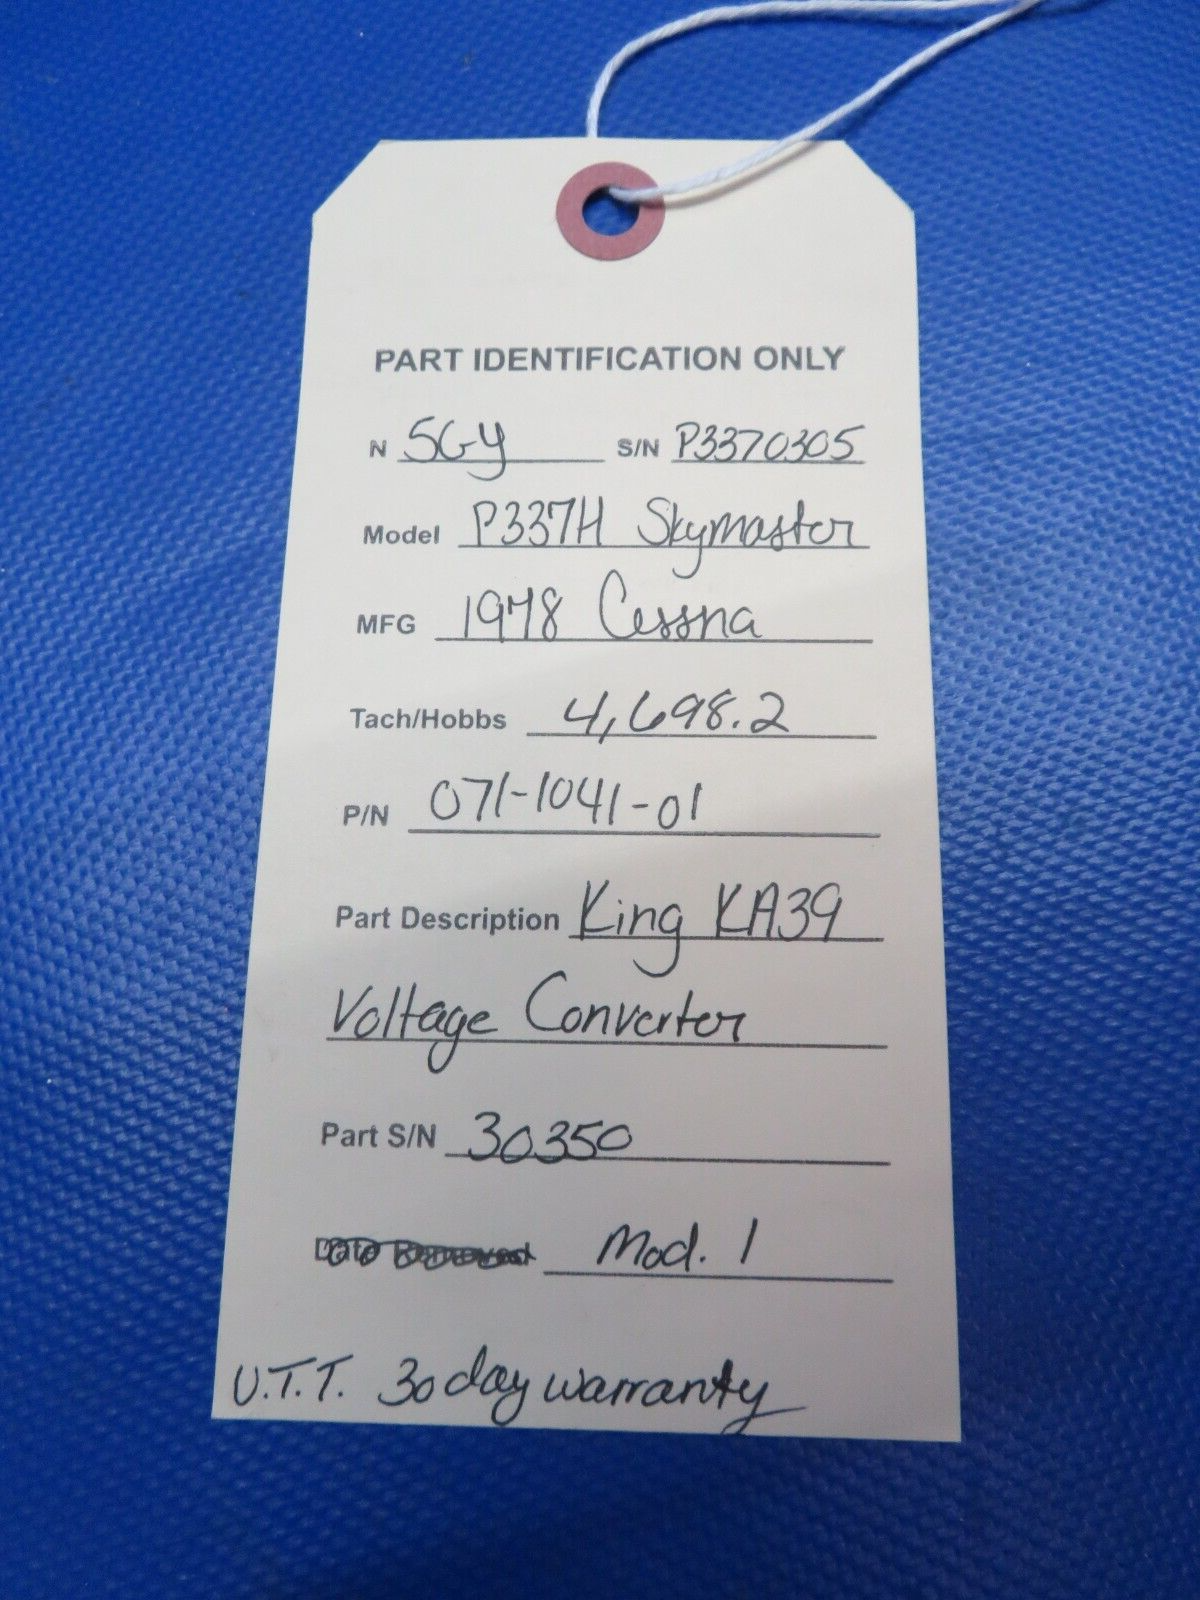 PART IDENTIFICATION ONLY
N 5GY S/N P3370305
Model P337H Skymaster
MFG 1978 Cessna
Tach/Hobbs 4,698.2
P/N 071-1041-01
Part Description King KA39
Voltage Converter
Part S/N 30350
Date Removed Mod. 1
U.T.T. 30 day warranty